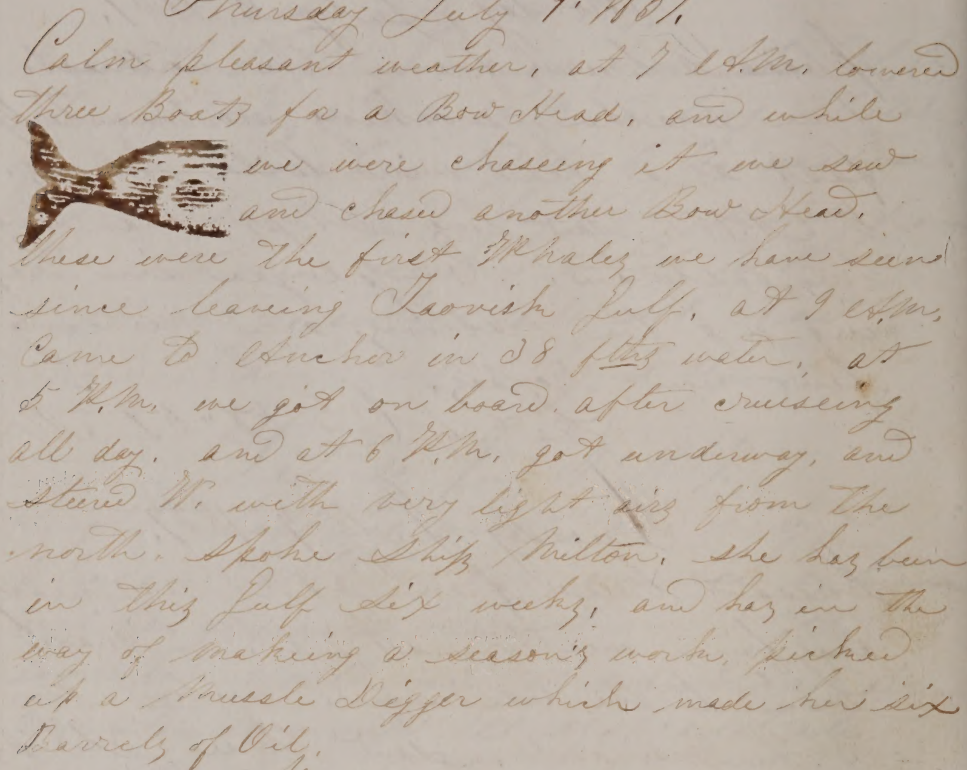 Thursday July
Calm pleasant weather, at 7 A.M. lowered
three Boats for a Bow Head, and while
we were chaseing it we saw
and chased another Bow Head.
these were the first Whales we have seen
since leaving Taovisk Gulf, at 9 A.M.
Came to Anchor in 38 fths water, at
5 P.M. we got on board after cruiseing
all day. and at 6 P.M. got underway, and
steered W. with very light airs from the
north. Spoke Ship Milton, she has been
in this Gulf six weeks, and has in the
way of makeing a season's work, picked
up a Mussle Digger which made her six
Barrels of Oil.